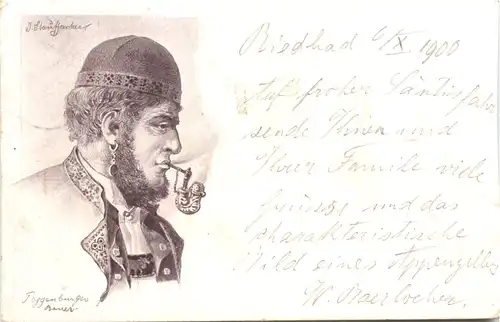 J. Stauffacher
Riedbad 6/X. 1900
Auf froher Säntisfahr
sende Ihnen und
Ihrer Familie viele
grüsse und das
charakteristische
Bild eines Appenzeller
W. Baerlocher.
Toggenburger
Bauer.